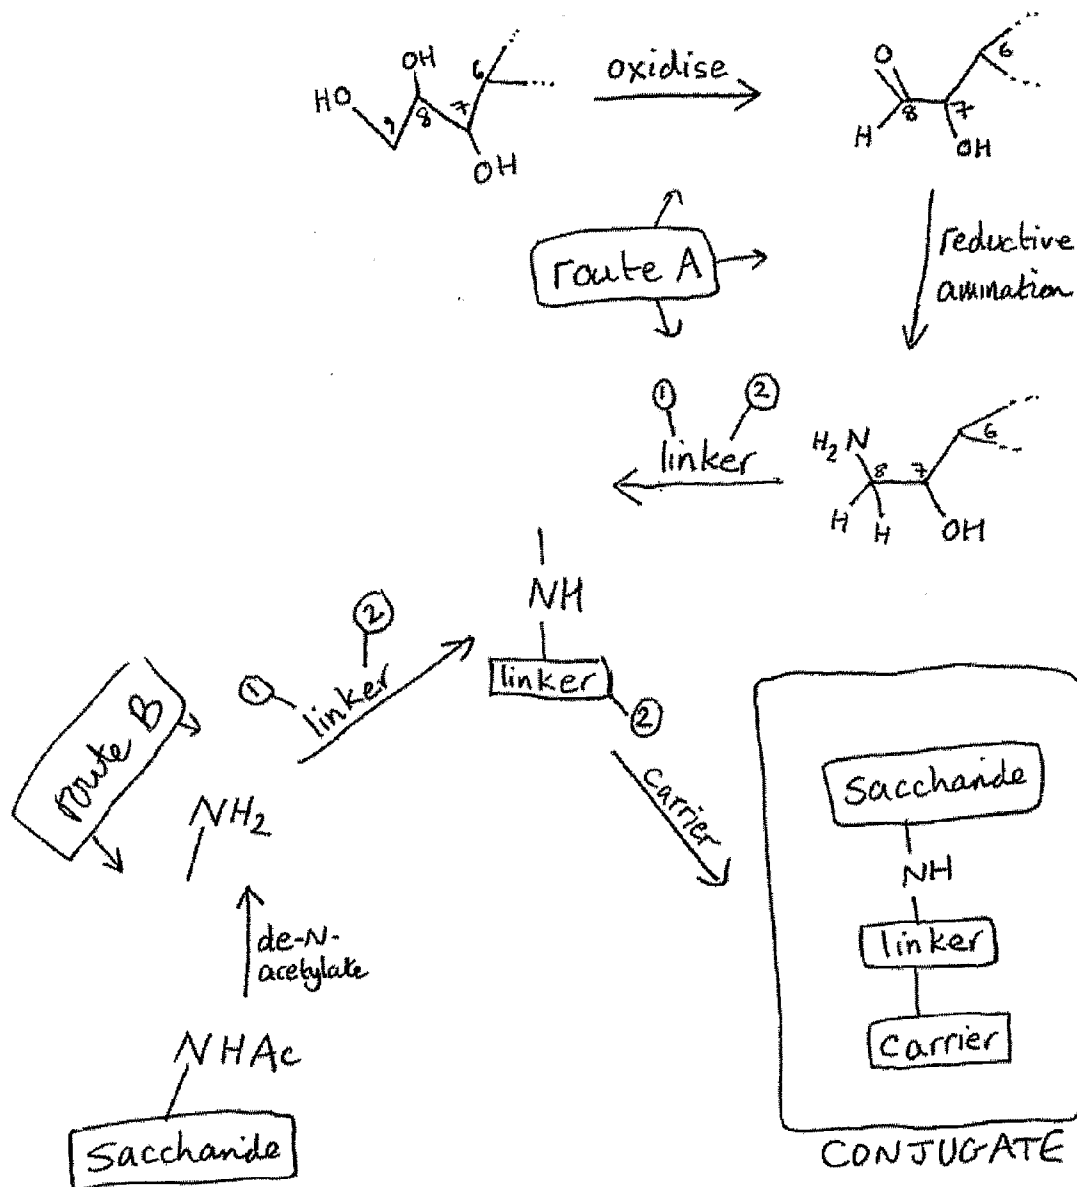 OH
6
oxidise
O
6
HO
9
8
7
8
7
OH
H
OH
route A
reductive
amination
1
2
linker
H2N
8
7
6
H
H
OH
NH
linker
2
1
2
linker
route B
NH2
carrier
de-N-
acetylate
NHAc
Saccharide
Saccharide
NH
linker
Carrier
CONJUGATE